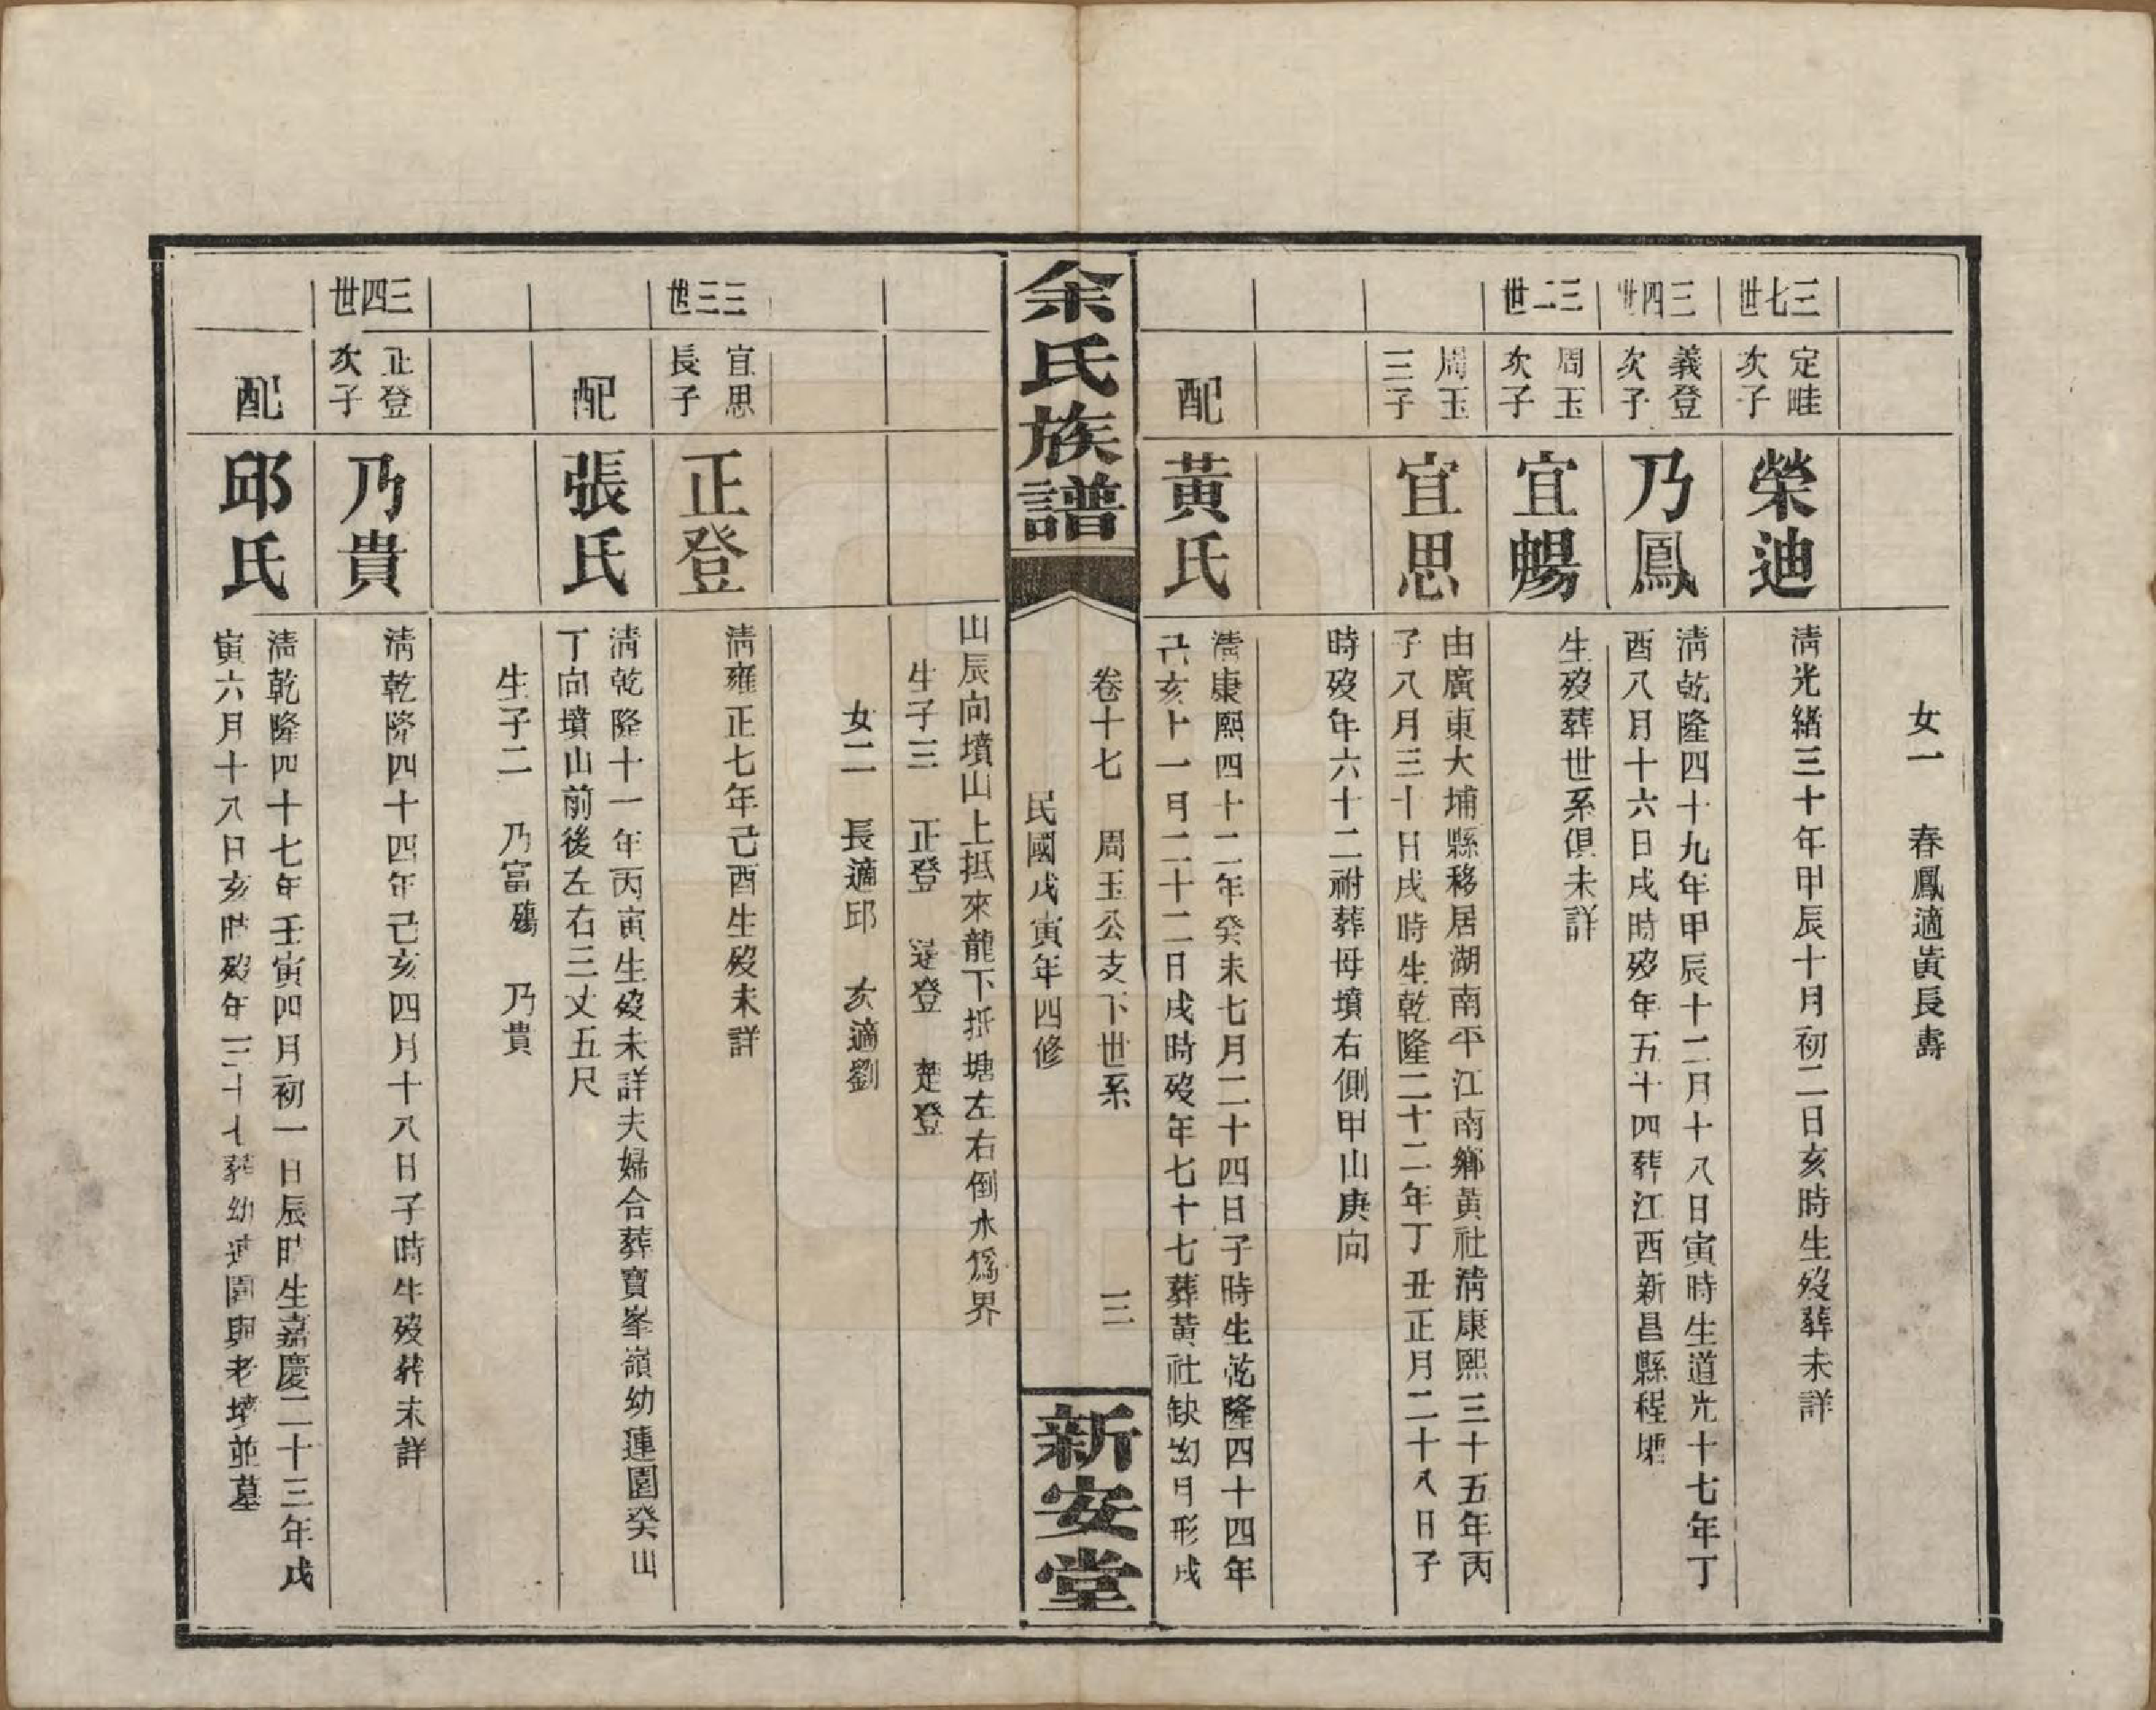 女一　春鳳適黃長壽
三七世
定畦
次子
榮迪
淸光緖三十年甲辰十月初二日亥時生歿葬未詳
三四世
義登
次子
乃鳳
淸乾隆四十九年甲辰十二月十八日寅時生道光十七年丁
酉八月十六日戌時歿年五十四葬江西新昌縣程塘
三二世
周玉
次子
宜暢
生歿葬世系俱未詳
周玉
三子
宜思
由廣東大埔縣移居湖南平江南鄉黃社淸康熙三十五年丙
子八月三十日戌時生乾隆二十二年丁丑正月二十八日子
時歿年六十二祔葬母墳右側甲山庚向
配
黃氏
淸康熙四十二年癸未七月二十四日子時生乾隆四十四年
己亥十一月二十二日戌時歿年七十七葬黃社缺幼月形戌
余氏族譜
卷十七　周玉公支下世系　三
民國戊寅年四修
新安堂
山辰向墳山上抵來龍下抵塘左右倒水爲界
生子三　正登　逵登　楚登
女二　長適邱　次適劉
三三世
宜思
長子
正登
淸雍正七年己酉生歿未詳
配
張氏
淸乾隆十一年丙寅生歿未詳夫婦合葬寶峯嶺幼蓮園癸山
丁向墳山前後左右三丈五尺
生子二　乃富殤　乃貴
三四世
正登
次子
乃貴
淸乾隆四十四年己亥四月十八日子時生歿葬未詳
配
邱氏
淸乾隆四十七年壬寅四月初一日辰時生嘉慶二十三年戊
寅六月十八日亥時歿年三十七葬幼蓮園與老墳並墓